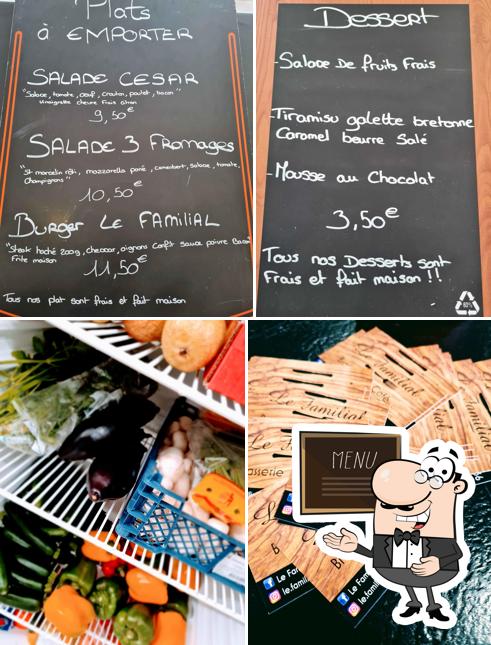 Plats
à EMPORTER
SALADE CESAR
"Salade, tomate, oeuf, Crouton, poulet, bacon"
Vinaigrette chevre Frais citron
9,50€
SALADE 3 Fromages
"St marcelin rôti, mozzarella pané, camenbert, salade, tomate,
Champignons"
10,50€
BURGER LE FAMILIAL
"Steak haché 200g, cheddar, oignons confit sauce poivre Bacon
Frite maison
11,50€
Tous nos plat sont frais et fait maison
Dessert
-Salade De fruits Frais
-Tiramisu galette bretonne
Caramel beurre Salé
-Mousse au Chocolat
3,50€
Tous nos Desserts sont
Frais et fait maison !!
80%
Le Familial
Le Familial
asserie
MENU
Le Fam
le.famil
Le Fa
le.fami